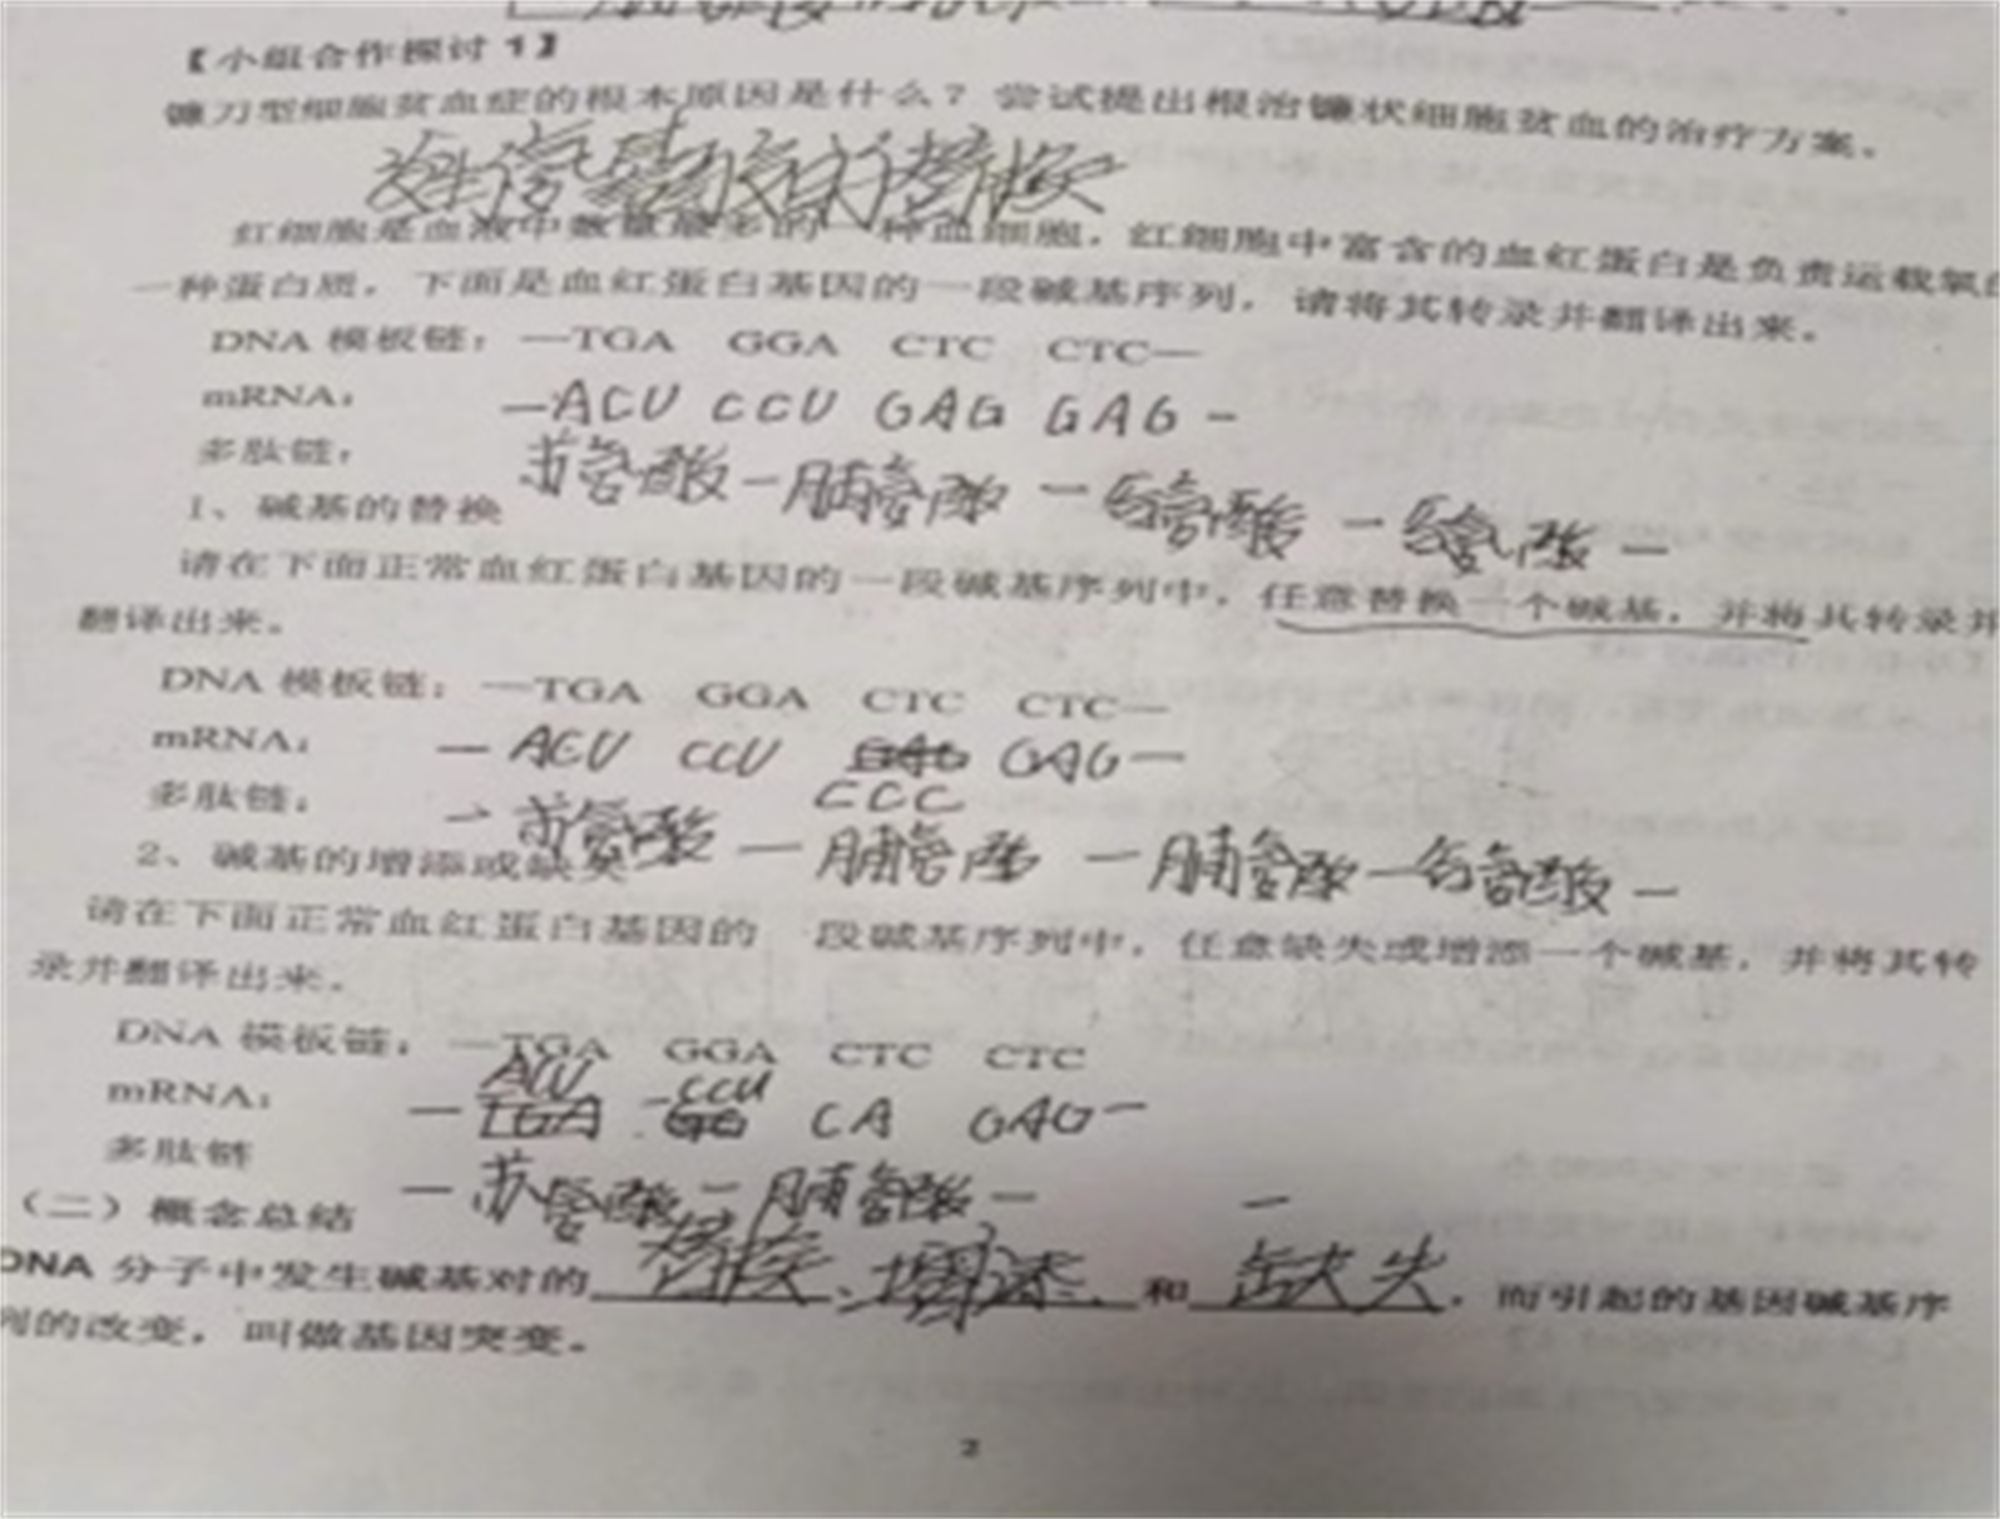 【小组合作探讨1】
镰刀型细胞贫血症的根本原因是什么？尝试提出根治镰状细胞贫血的治疗方案。
发生了碱基的替换
红细胞是血液中数量最多的一种血细胞，红细胞中富含的血红蛋白是负责运载氧的
一种蛋白质，下面是血红蛋白基因的一段碱基序列，请将其转录并翻译出来。
DNA 模板链：—TGA GGA CTC CTC—
mRNA： —ACU CCU GAG GAG—
多肽链： 苏氨酸—脯氨酸—谷氨酸—谷氨酸—
1、碱基的替换
请在下面正常血红蛋白基因的一段碱基序列中，任意替换一个碱基，并将其转录并
翻译出来。
DNA 模板链：—TGA GGA CTC CTC—
mRNA： —ACU CCU GAG GAG—
CCC
多肽链： —苏氨酸—脯氨酸—脯氨酸—谷氨酸—
2、碱基的增添或缺失
请在下面正常血红蛋白基因的 段碱基序列中，任意缺失或增添一个碱基，并将其转
录并翻译出来。
DNA 模板链：—TGA GGA CTC CTC
ACU —CCU
mRNA： —TGA GG CA GAG—
多肽链 —苏氨酸—脯氨酸— —
（二）概念总结
DNA 分子中发生碱基对的替换、增添和缺失，而引起的基因碱基序
列的改变，叫做基因突变。
2